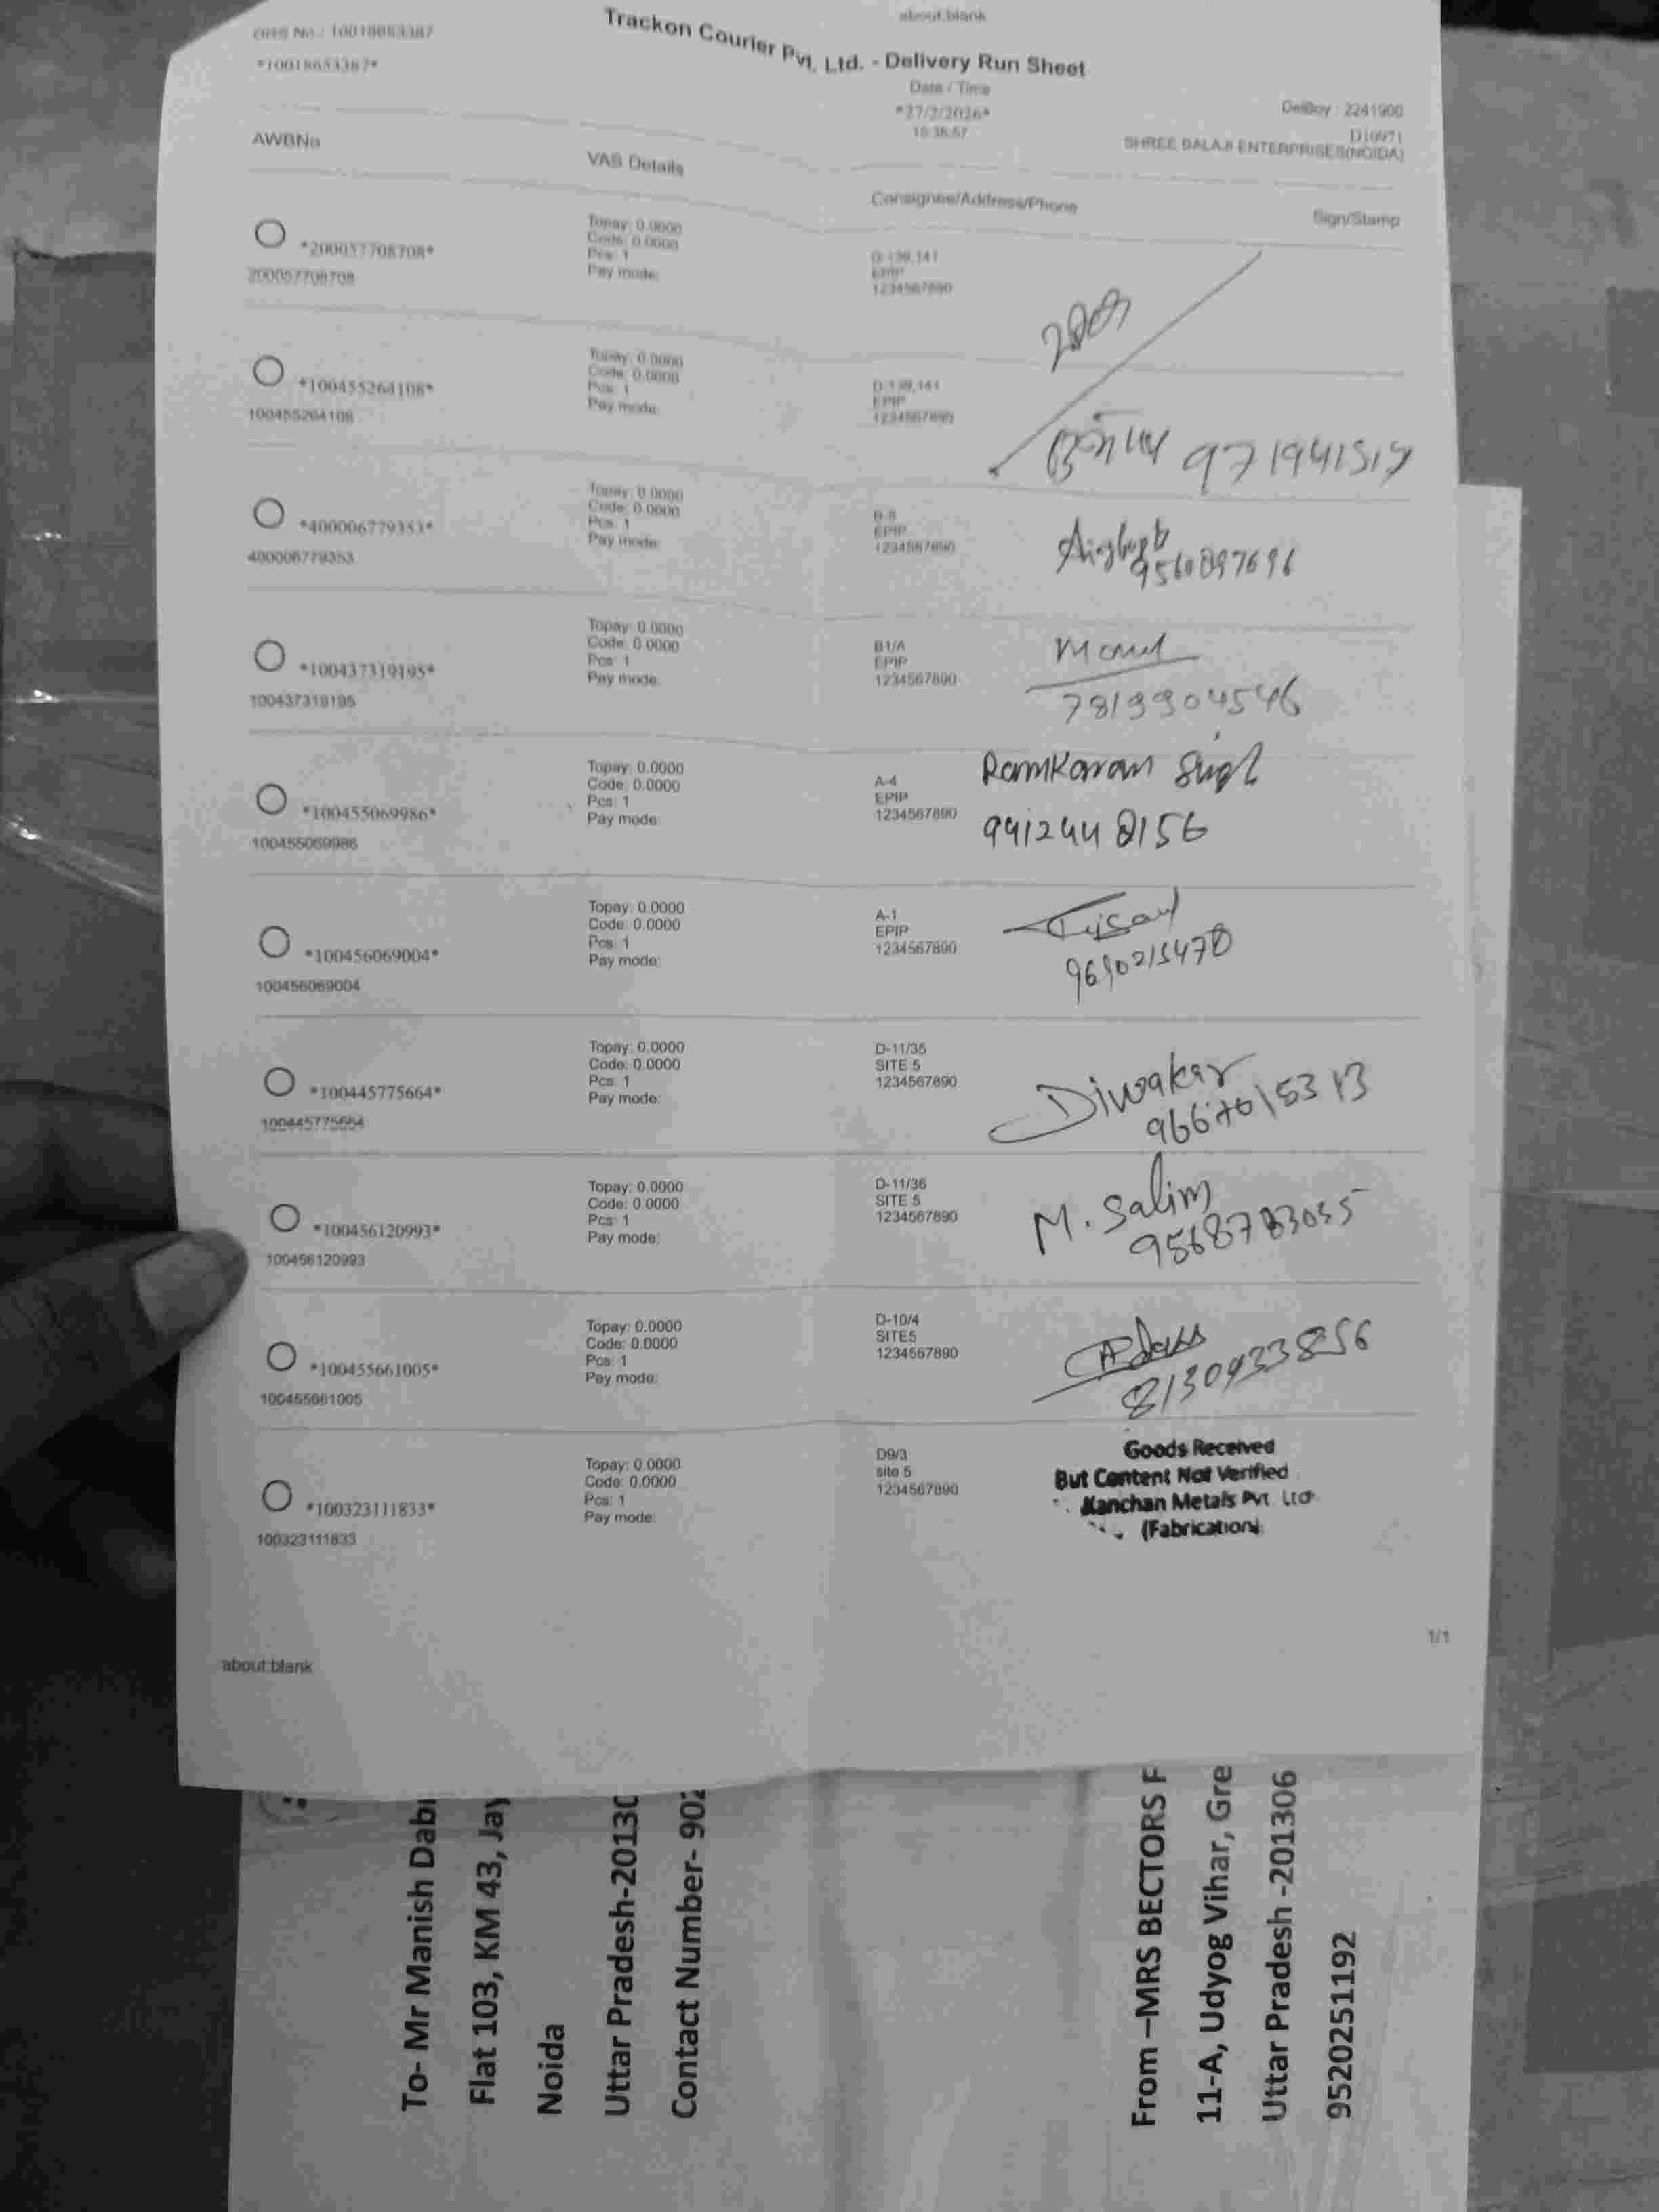 about:blank
Trackon Courier Pvt. Ltd. - Delivery Run Sheet
DRS No.: 10018653387
*10018653387*
Date / Time
*27/2/2026*
DelBoy : 2241900
D10971
SHREE BALAJI ENTERPRISES(NOIDA)
AWBNo
VAS Details
Consignee/Address/Phone
Sign/Stamp
*200057708708*
200057708708
Topay: 0.0000
Code: 0.0000
Pcs: 1
Pay mode:
D-139,141
EPIP
1234567890
*100455264108*
100455264108
Topay: 0.0000
Code: 0.0000
Pcs: 1
Pay mode:
D-139,141
EPIP
1234567890
*400006779353*
400006779353
Topay: 0.0000
Code: 0.0000
Pcs: 1
Pay mode:
B-8
EPIP
1234567890
9560897696
*100437319195*
100437319195
Topay: 0.0000
Code: 0.0000
Pcs: 1
Pay mode:
B1/A
EPIP
1234567890
7819904546
*100455069986*
100455069986
Topay: 0.0000
Code: 0.0000
Pcs: 1
Pay mode:
A-4
EPIP
1234567890
RamKaran Singh
*100456069004*
100456069004
Topay: 0.0000
Code: 0.0000
Pcs: 1
Pay mode:
A-1
EPIP
1234567890
*100445775664*
100445775664
Topay: 0.0000
Code: 0.0000
Pcs: 1
Pay mode:
D-11/35
SITE 5
1234567890
Diwakar
*100456120993*
100456120993
Topay: 0.0000
Code: 0.0000
Pcs: 1
Pay mode:
D-11/36
SITE 5
1234567890
M. Salim
9568783055
*100455661005*
100455661005
Topay: 0.0000
Code: 0.0000
Pcs: 1
Pay mode:
D-10/4
SITE5
1234567890
8130933856
*100323111833*
100323111833
Topay: 0.0000
Code: 0.0000
Pcs: 1
Pay mode:
D9/3
site 5
1234567890
Goods Received
But Content Not Verified
Kanchan Metals Pvt. Ltd
(Fabrication)
1/1
about:blank
To- Mr Manish Dab
Flat 103, KM 43, Jay
Noida
Uttar Pradesh-20130
Contact Number- 902
From –MRS BECTORS F
11-A, Udyog Vihar, Gre
Uttar Pradesh -201306
9520251192